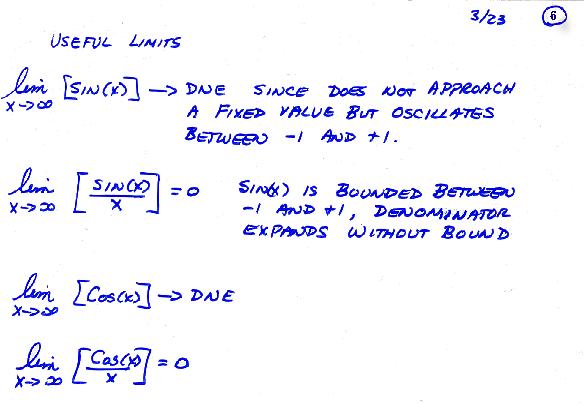 3/23 6
USEFUL LIMITS
lim x->∞ [SIN(x)] -> DNE SINCE DOES NOT APPROACH
A FIXED VALUE BUT OSCILLATES
BETWEEN -1 AND +1.
lim x->∞ [SIN(x)/x] = 0 SIN(x) IS BOUNDED BETWEEN
-1 AND +1, DENOMINATOR
EXPANDS WITHOUT BOUND
lim x->∞ [COS(x)] -> DNE
lim x->∞ [COS(x)/x] = 0